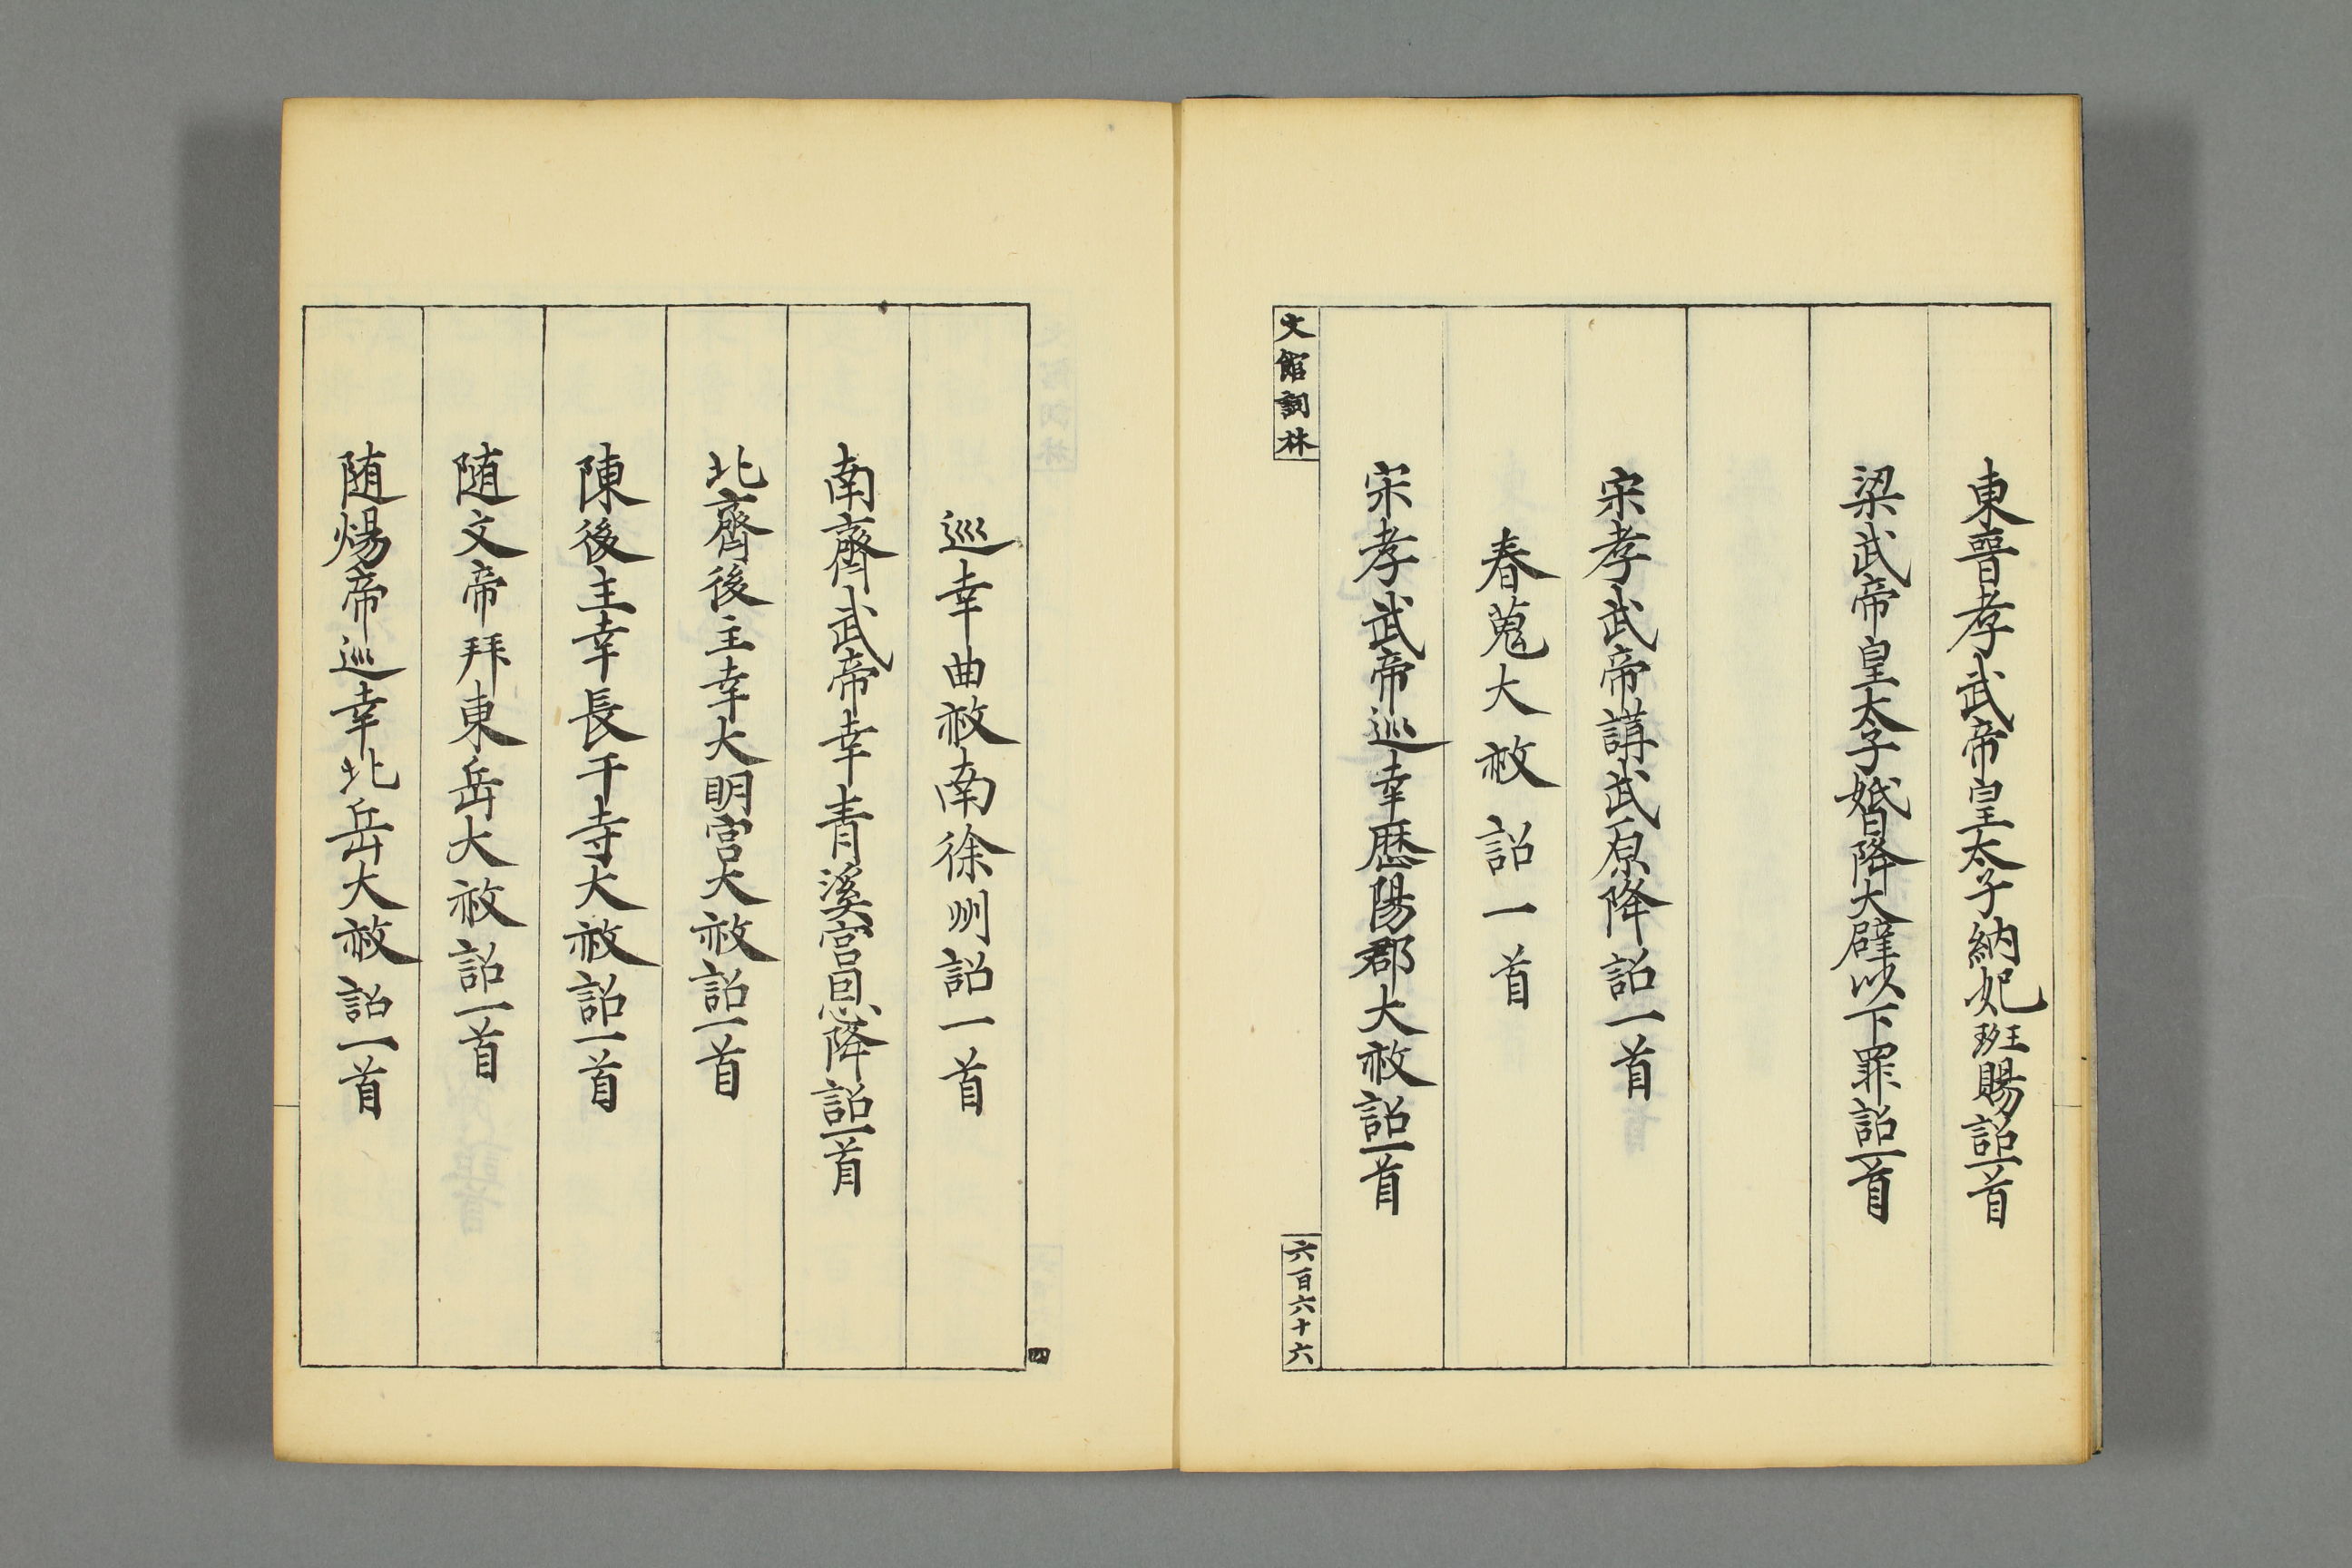 東晉孝武帝皇太子納妃班賜詔一首
梁武帝皇太子婚降大辟以下罪詔一首
宋孝武帝講武原降詔一首
春蒐大赦詔一首
宋孝武帝巡幸歷陽郡大赦詔一首
文館詞林
六百六十六
四
巡幸曲赦南徐州詔一首
南齊武帝幸青溪宮恩降詔一首
北齊後主幸大明宮大赦詔一首
陳後主幸長干寺大赦詔一首
随文帝拜東岳大赦詔一首
随煬帝巡幸北岳大赦詔一首